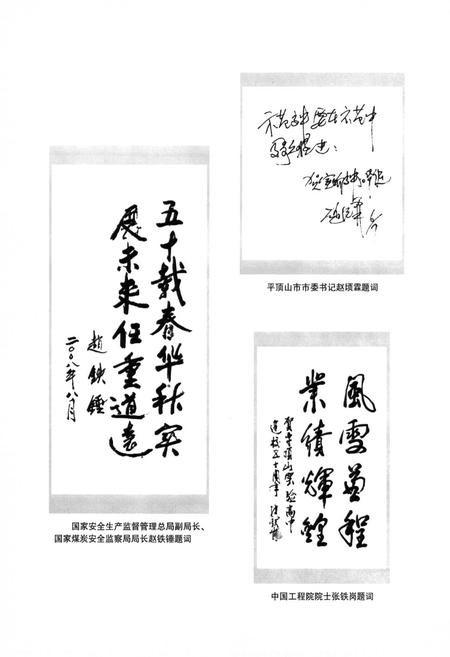 五十载春华秋实
展未来任重道远
趙铁锤
二〇〇八年八月
国家安全生产监督管理总局副局长、
国家煤炭安全监察局局长赵铁锤题词
平顶山市市委书记赵顷霖题词
風雪兼程
業績輝煌
賀平頂山实验高中
建校五十周年
中国工程院院士张铁岗题词